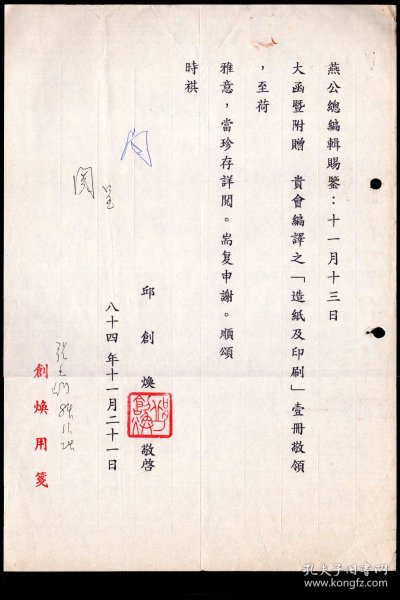 燕公總編輯賜鑒：十一月十三日
大函暨附贈　貴會編譯之「造紙及印刷」壹冊敬領
，至荷
雅意，當珍存詳閱。耑复申謝。順頌
時祺
邱創煥
敬啓
八十四年十一月二十一日
閱
84.11.24.
創煥用箋
孔夫子旧书网
www.kongfz.com